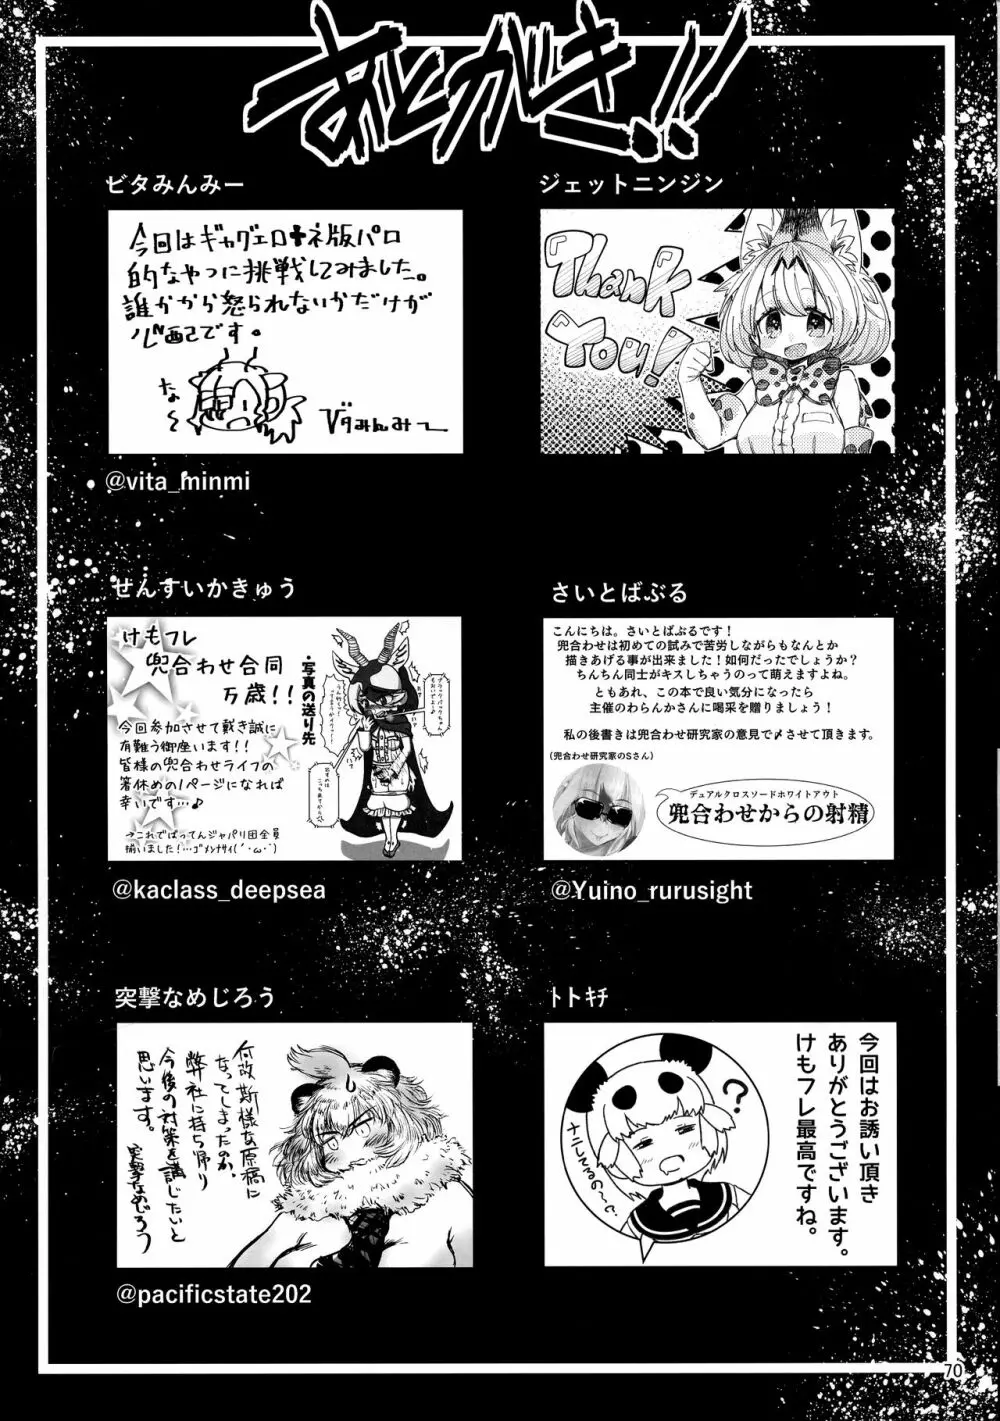 あとがき!!
ビタみんみー
今回はギャグエロ+ネ版パロ
的なやつに挑戦してみました。
誰かから怒られないかだけが
心配です。
なー
ビタみんみー
@vita_minmi
ジェットニンジン
Thank
You!
せんすいかきゅう
けもフレ
兜合わせ合同
万歳!!
今回参加させて戴き誠に
有難う御座います!!
皆様の兜合わせライフの
箸休めの1ページになれば
幸いです…♪
→これでばってんジャパリ団全員
揃いました!…ゴメンナサイ(´･ω･`)
・写真の送り先
@kaclass_deepsea
さいとばぶる
こんにちは。さいとばぶるです！
兜合わせは初めての試みで苦労しながらもなんとか
描きあげる事が出来ました！如何だったでしょうか？
ちんちん同士がキスしちゃうのって萌えますよね。
ともあれ、この本で良い気分になったら
主催のわらんかさんに喝采を贈りましょう！
私の後書きは兜合わせ研究家の意見で〆させて頂きます。
(兜合わせ研究家のSさん)
デュアルクロスソードホワイトアウト
兜合わせからの射精
@Yuino_rurusight
突撃なめじろう
何故斯様な原稿に
なってしまったのか、
弊社に持ち帰り
今後の対策を講じたいと
思います。
突撃なめじろう
@pacificstate202
ﾄトｷﾁ
今回はお誘い頂き
ありがとうございます。
けもフレ最高ですね。
?
70